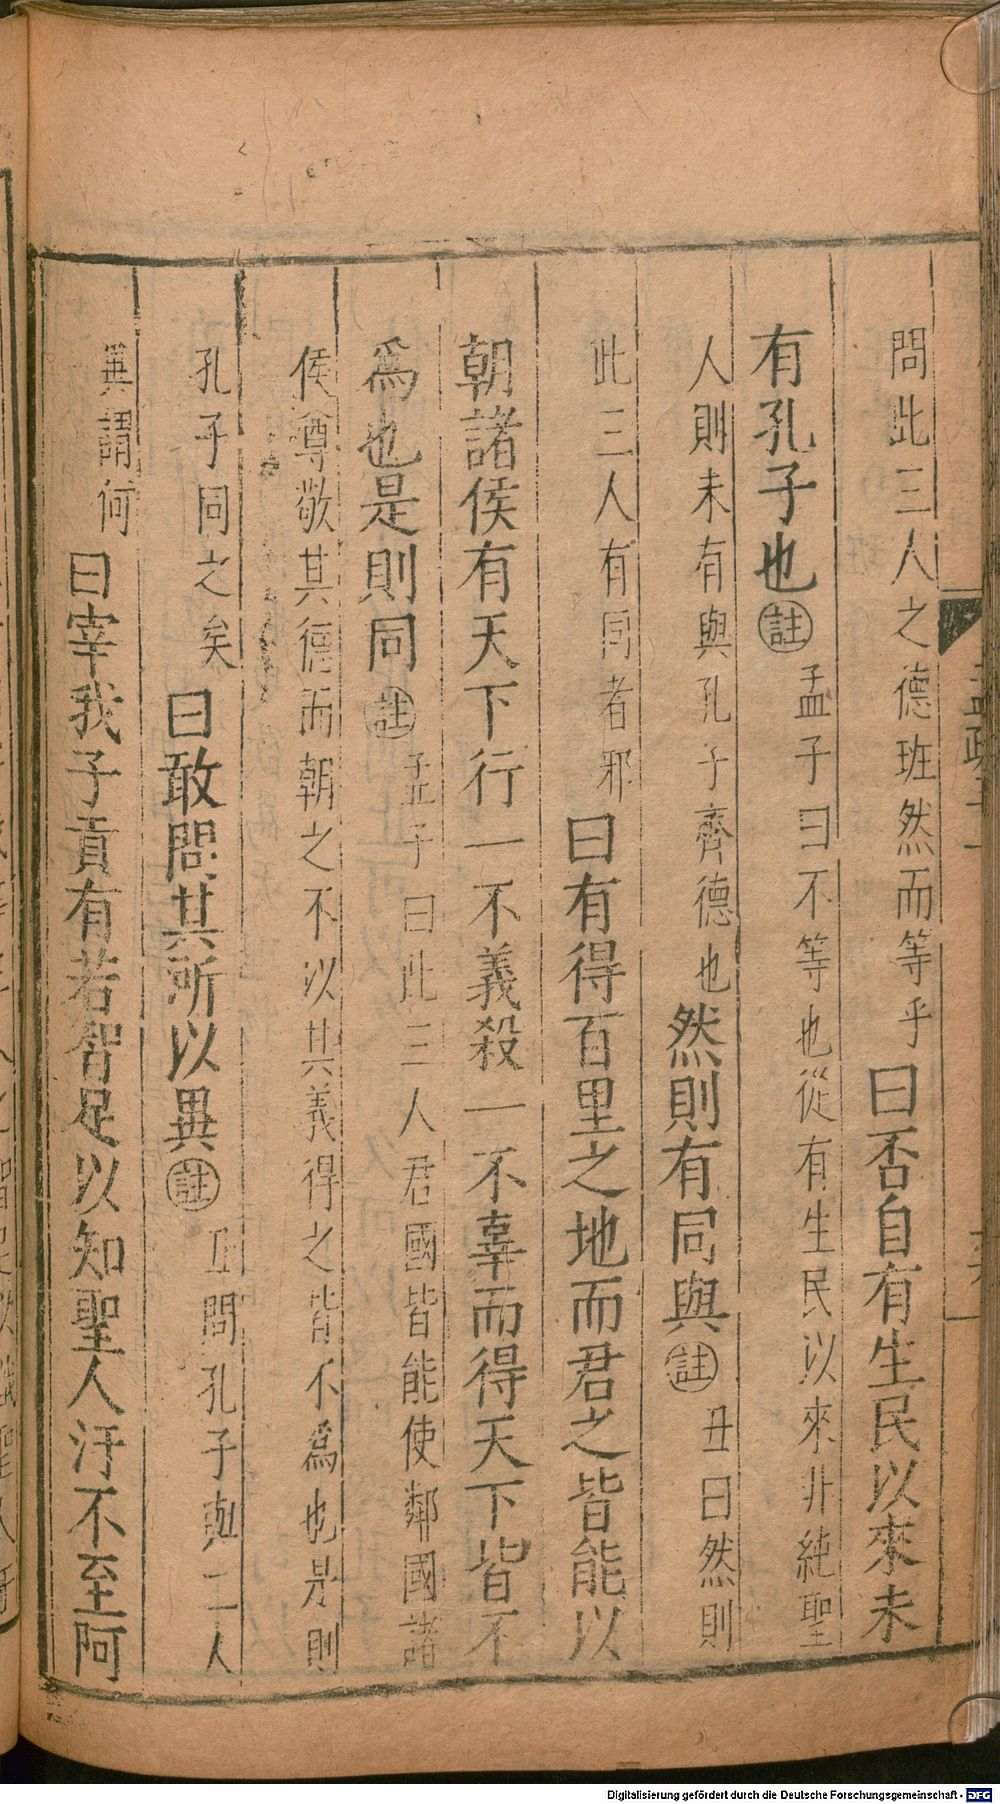 問此三人之德班然而等乎曰否自有生民以來未
有孔子也註孟子曰不等也從有生民以來非純聖
人則未有與孔子齊德也然則有同與註丑曰然則
此三人有同者邪曰有得百里之地而君之皆能以
朝諸侯有天下行一不義殺一不辜而得天下皆不
爲也是則同註孟子曰此三人君國皆能使鄰國諸
侯尊敬其德而朝之不以其義得之皆不爲也是則
孔子同之矣曰敢問其所以異註丑問孔子與二人
異謂何曰宰我子貢有若智足以知聖人汙不至阿
Digitalisierung gefördert durch die Deutsche Forschungsgemeinschaft - DFG